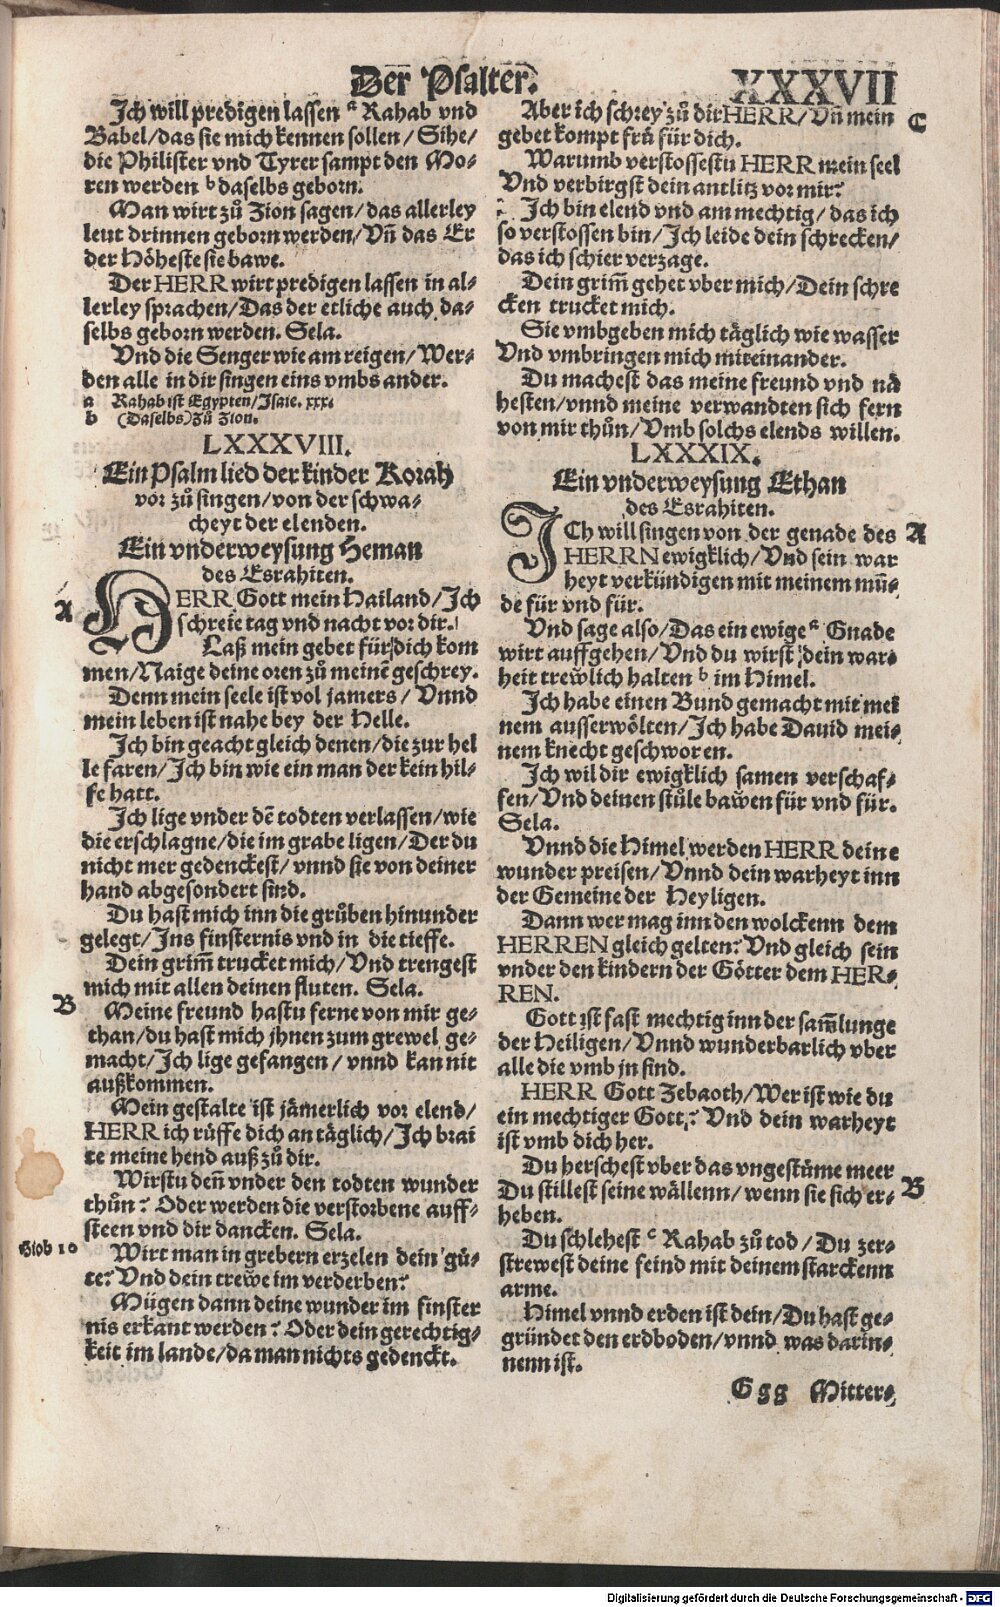 Der Psalter.
XXXVII
Ich will predigen lassen a Rahab vnd
Babel/das sie mich kennen sollen/Sihe/
die Philister vnd Tyrer sampt den Mo-
ren werden b daselbs geborn.
Man wirt zů Zion sagen/das allerley
leut drinnen geborn werden/Vñ das Er
der Höheste sie bawe.
Der HERR wirt predigen lassen in al-
lerley sprachen/Das der etliche auch da-
selbs geborn werden. Sela.
Vnd die Senger wie am reigen/Wer-
den alle in dir singen eins vmbs ander.
a Rahab ist Egypten/Isaie. xxx.
b (Daselbs) Zů Zion.
LXXXVIII.
Ein Psalm lied der kinder Korah
vor zů singen/von der schwa-
cheyt der elenden.
Ein vnderweysung Heman
des Esrahiten.
A
HERR Gott mein Hailand/Ich
schreie tag vnd nacht vor dir.
Laß mein gebet für dich kom
men/Naige deine oren zů meinē geschrey.
Denn mein seele ist vol jamers/Vnnd
mein leben ist nahe bey der Helle.
Ich bin geacht gleich denen/die zur hel
le faren/Ich bin wie ein man der kein hil-
fe hatt.
Ich lige vnder dē todten verlassen/wie
die erschlagne/die im grabe ligen/Der du
nicht mer gedenckest/vnnd sie von deiner
hand abgesondert sind.
Du hast mich inn die grůben hinunder
gelegt/Ins finsternis vnd in die tieffe.
Dein grim̄ trucket mich/Vnd trengest
mich mit allen deinen fluten. Sela.
B
Meine freund hastu ferne von mir ge-
than/du hast mich jhnen zum grewel ge-
macht/Ich lige gefangen/vnnd kan nit
außkommen.
Mein gestalte ist jämerlich vor elend/
HERR ich rüffe dich an täglich/Ich brai
te meine hend auß zů dir.
Wirstu deñ vnder den todten wunder
thůn? Oder werden die verstorbene auff-
steen vnd dir dancken. Sela.
Hiob 10
Wirt man in grebern erzelen dein gü-
te? Vnd dein trewe im verderben?
Mügen dann deine wunder im finster
nis erkant werden? Oder dein gerechtig-
keit im lande/da man nichts gedenckt.
Aber ich schrey zů dir HERR/Vñ mein
C
gebet kompt frü für dich.
Warumb verstossestu HERR mein seel
Vnd verbirgst dein antlitz vor mir?
Ich bin elend vnd am mechtig/das ich
so verstossen bin/Ich leide dein schrecken/
das ich schier verzage.
Dein grim̄ gehet vber mich/Dein schre
cken trucket mich.
Sie vmbgeben mich täglich wie wasser
Vnd vmbringen mich miteinander.
Du machest das meine freund vnd nä
hesten/vnnd meine verwandten sich fern
von mir thůn/Vmb solchs elends willen.
LXXXIX.
Ein vnderweysung Ethan
des Esrahiten.
ICh will singen von der genade des
A
HERRN ewigklich/Vnd sein war
heyt verkündigen mit meinem mūn-
de für vnd für.
Vnd sage also/Das ein ewige a Gnade
wirt auffgehen/Vnd du wirst dein war-
heit trewlich halten b im Himel.
Ich habe einen Bund gemacht mit mei
nem ausserwölten/Ich habe Dauid mei-
nem knecht geschworen.
Ich wil dir ewigklich samen verschaf-
fen/Vnd deinen stůle bawen für vnd für.
Sela.
Vnnd die Himel werden HERR deine
wunder preisen/Vnnd dein warheyt inn
der Gemeine der Heyligen.
Dann wer mag inn den wolckenn dem
HERREN gleich gelten? Vnd gleich sein
vnder den kindern der Götter dem HER-
REN.
Gott ist fast mechtig inn der sam̄lunge
der Heiligen/Vnnd wunderbarlich vber
alle die vmb jn sind.
HERR Gott Zebaoth/Wer ist wie du
ein mechtiger Gott? Vnd dein warheyt
ist vmb dich her.
Du herschest vber das vngestüme meer
Du stillest seine wällenn/wenn sie sich er-
B
heben.
Du schlehest c Rahab zů tod/Du zer-
strewest deine feind mit deinem starckenn
arme.
Himel vnnd erden ist dein/Du hast ge-
gründet den erdboden/vnnd was darin-
nenn ist.
Ggg Mitter-
Digitalisierung gefördert durch die Deutsche Forschungsgemeinschaft - DFG